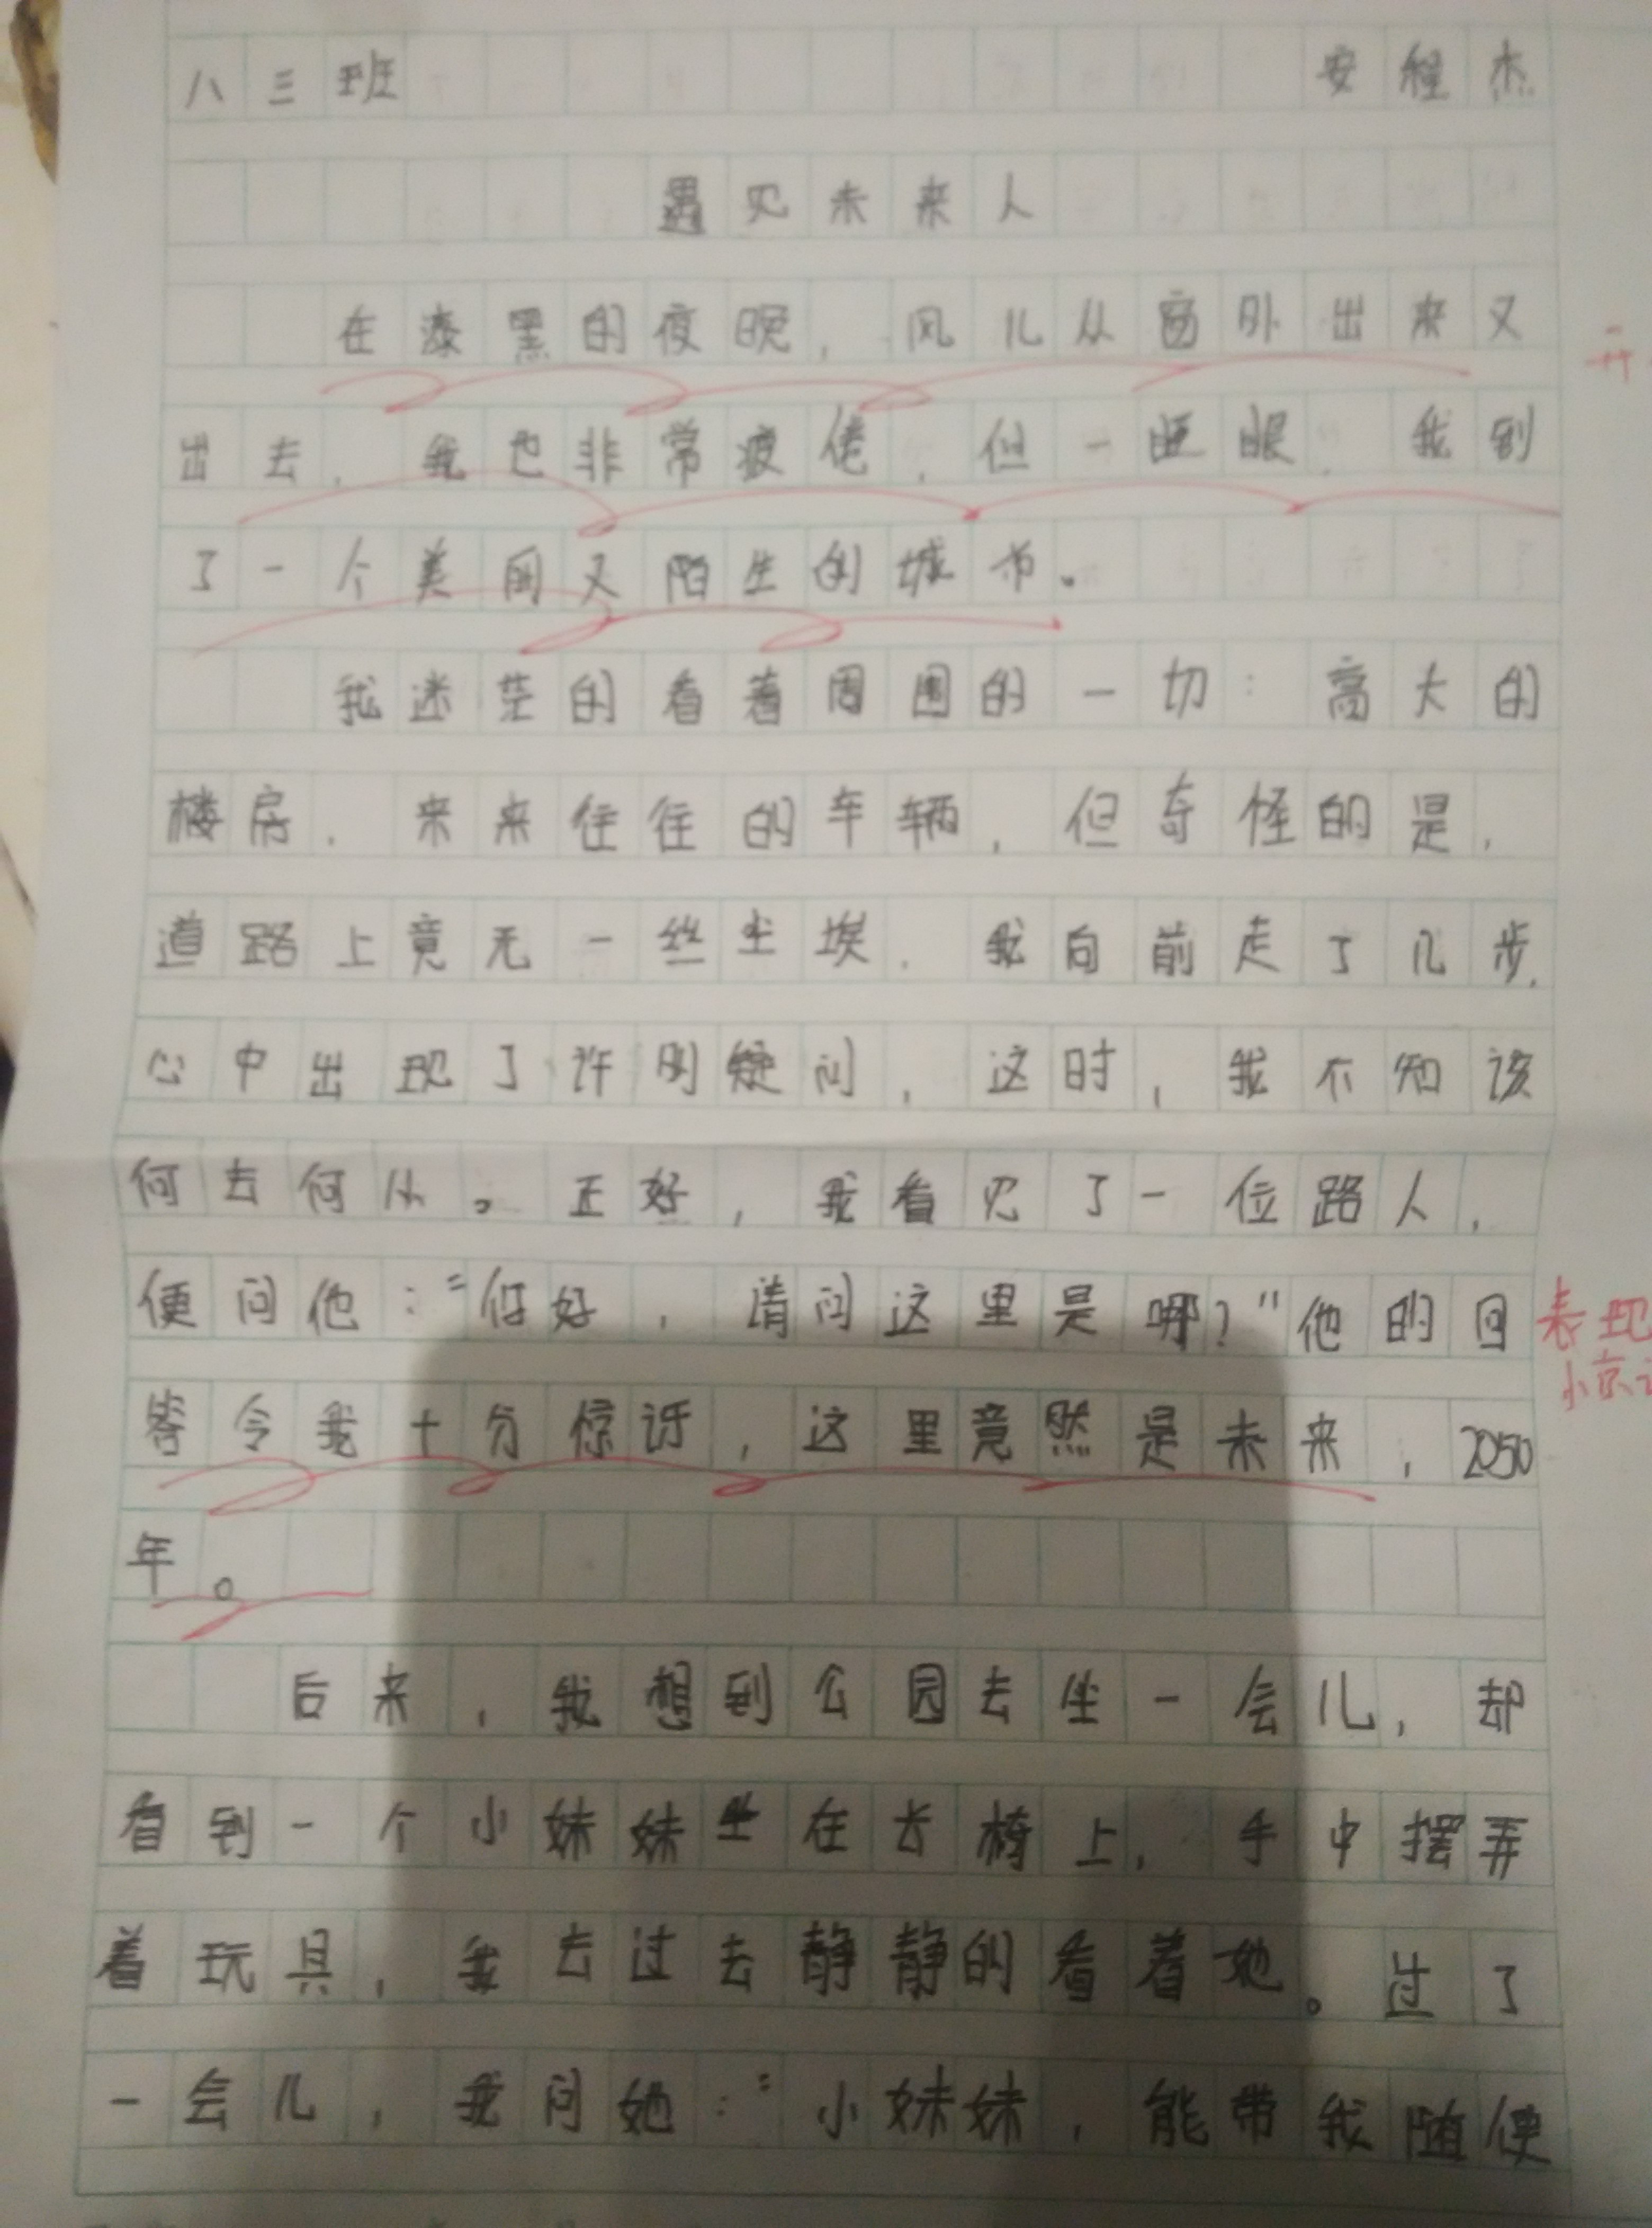 八三班 安程杰
遇见未来人
在漆黑的夜晚，风儿从窗外出来又
出去，我也非常疲倦，但一睡眼，我到
了一个美丽又陌生的城市。
我迷茫的看着周围的一切：高大的
楼房，来来往往的车辆，但奇怪的是，
道路上竟无一丝尘埃，我向前走了几步，
心中出现了许多疑问，这时，我不知该
何去何从。正好，我看见了一位路人，
便问他："你好，请问这里是哪？"他的回
答令我十分惊讶，这里竟然是未来，2050
年。
后来，我想到公园去坐一会儿，却
看到一个小妹妹坐在长椅上，手中摆弄
着玩具，我去过去静静的看着她。过了
一会儿，我问她："小妹妹，能带我随便
表现